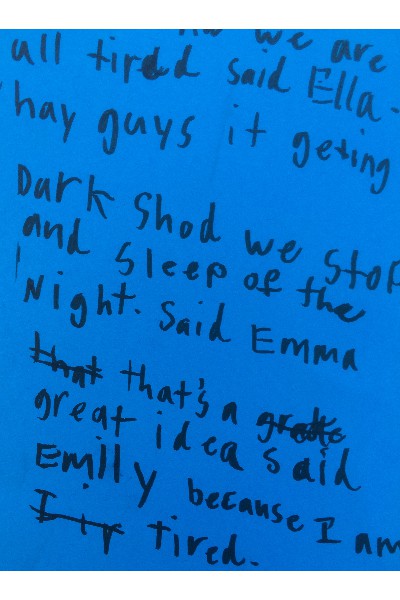 we are
all tired said Ella.
hay guys it geting
Dark Shod we stop
and Sleep of the
Night. Said Emma
that that's a grate
great idea said
Emilly because I am
tired.